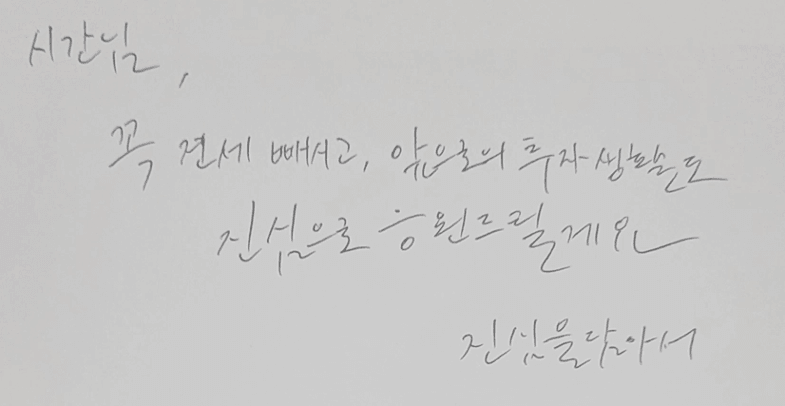 시간님,
꼭 전세 빼시고, 앞으로의 투자생활도
진심으로 응원드릴게요
진심을담아서